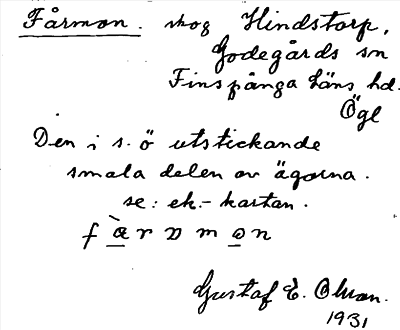 Fårmon. skog Hindstorp,
Godegårds sn
Finspånga läns hd.
Ögl
Den i s. ö utstickande
smala delen av ägorna.
se: ek.-kartan.
Gustaf E.
1931